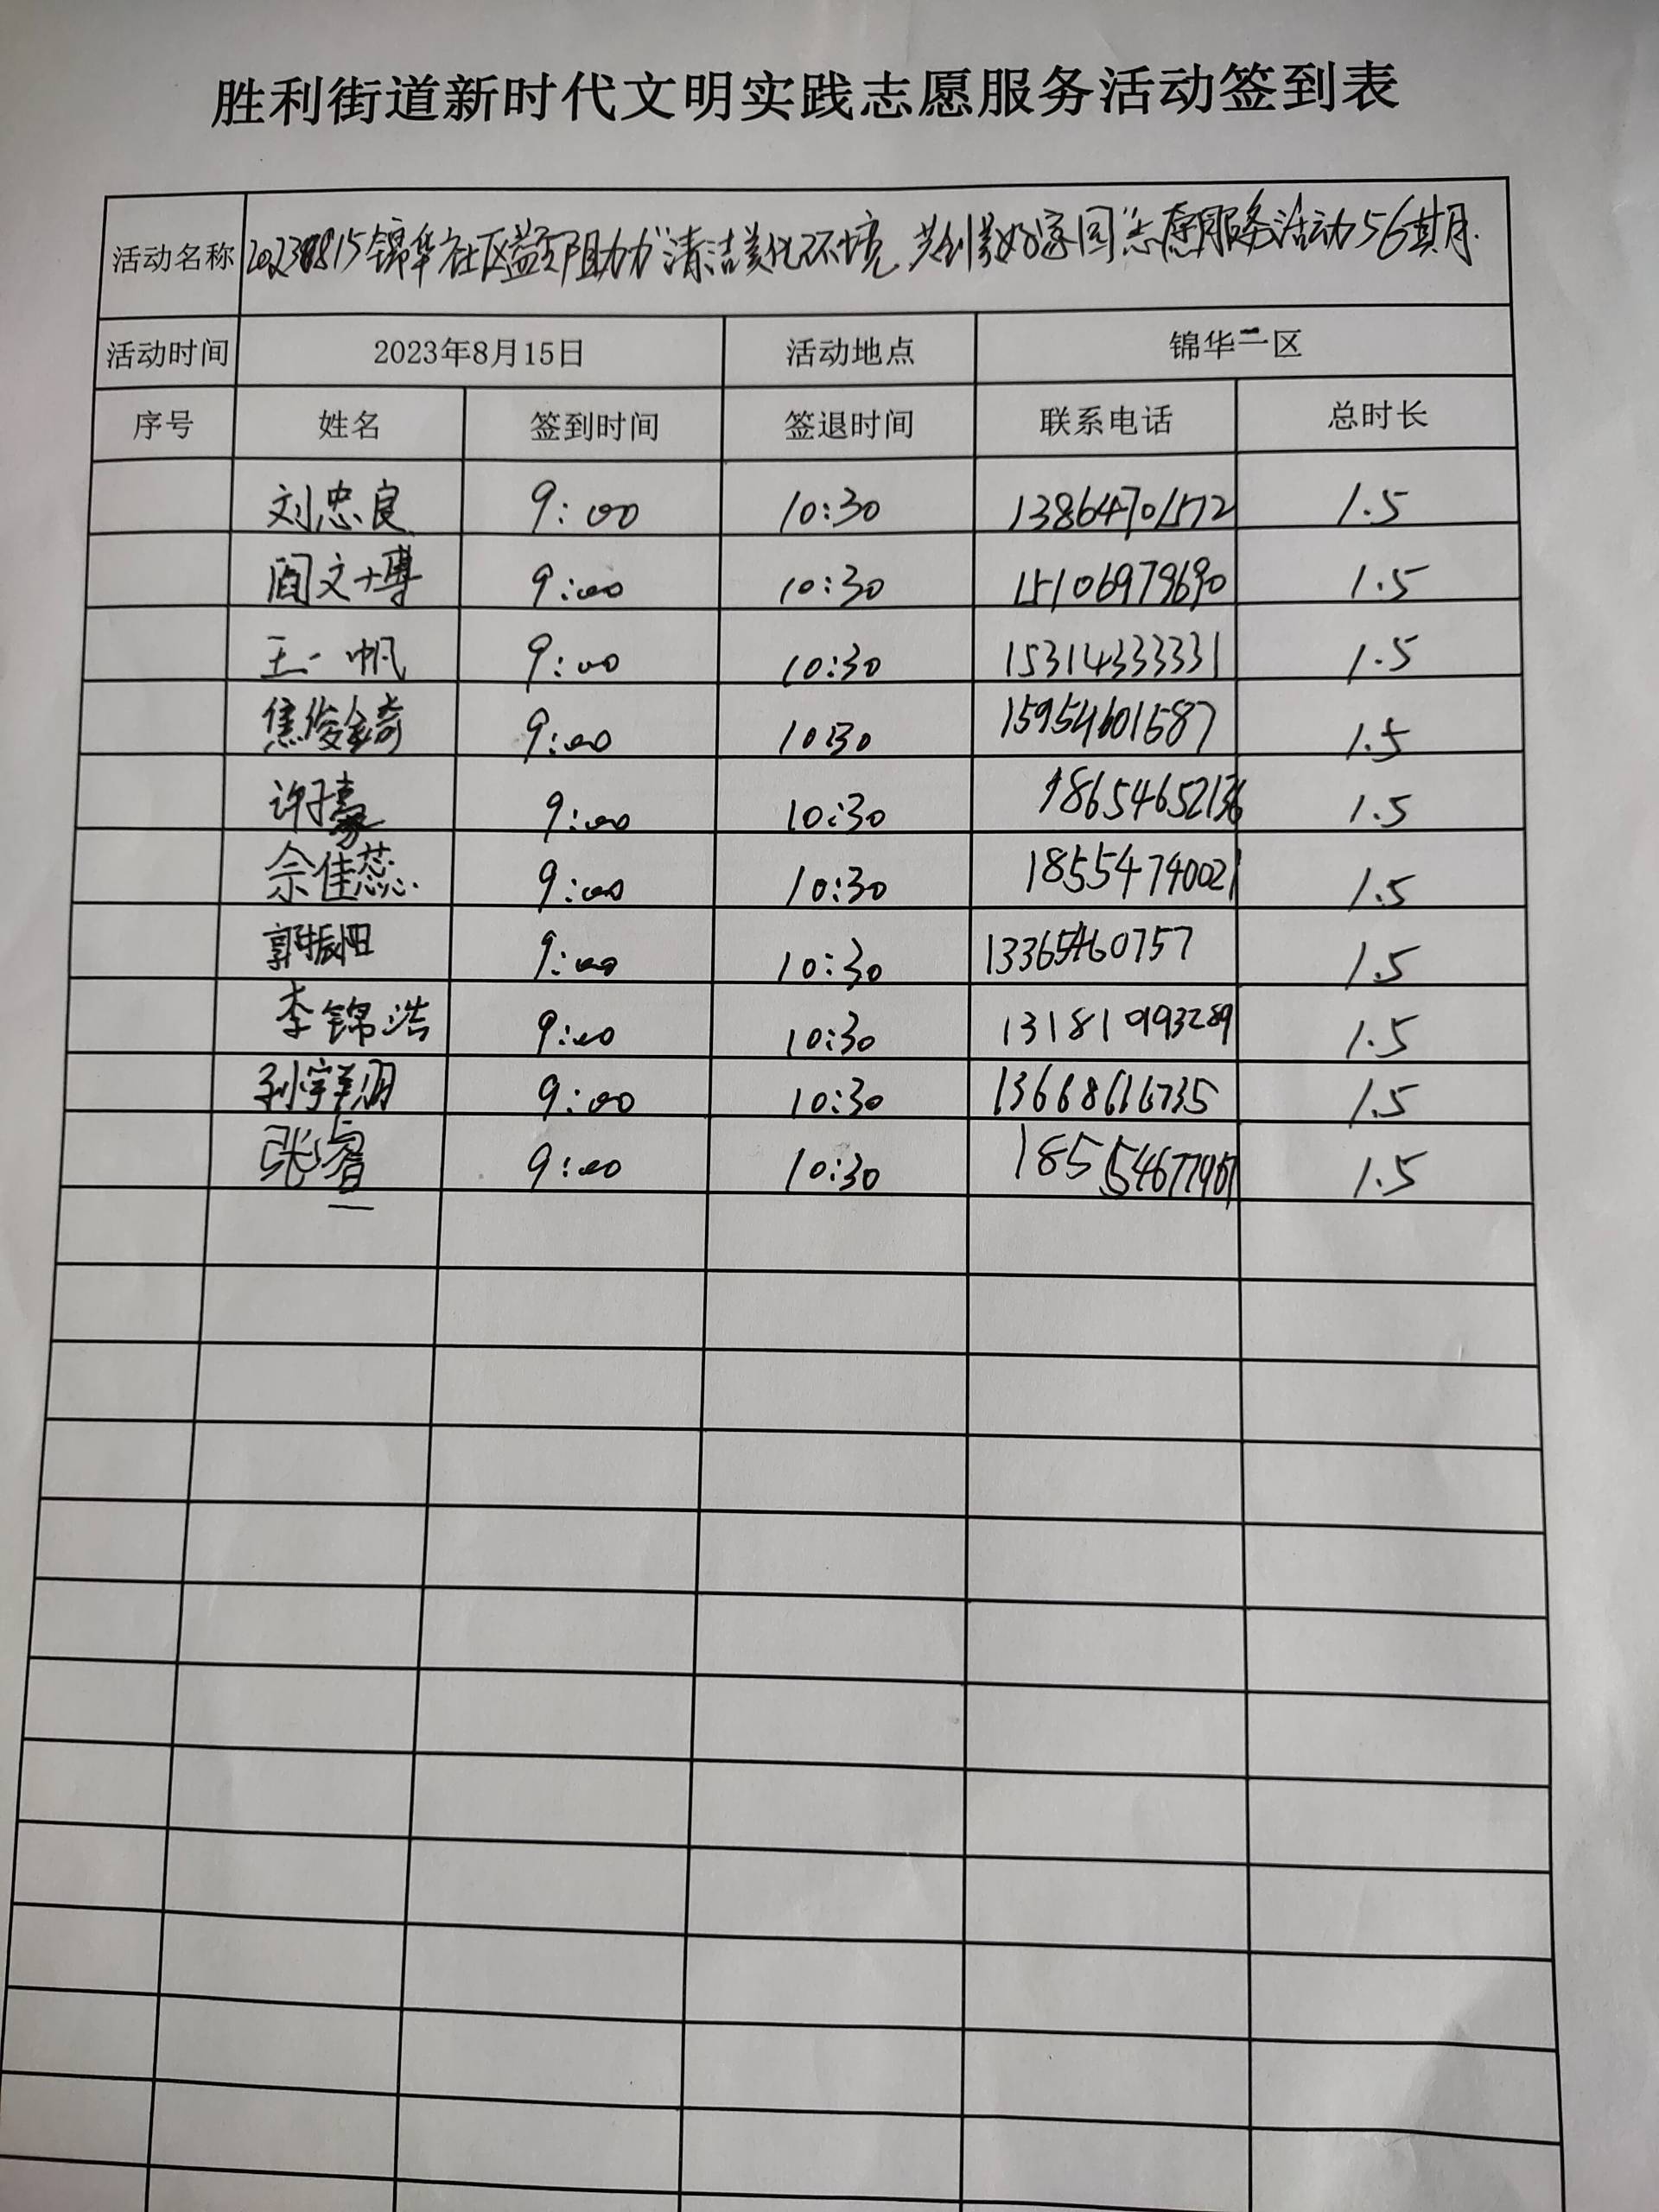 胜利街道新时代文明实践志愿服务活动签到表
活动名称 20230815锦华社区益 助力"清洁美化环境 共创美好家园"志愿服务活动56期.
活动时间 2023年8月15日 活动地点 锦华二区
序号 姓名 签到时间 签退时间 联系电话 总时长
刘忠良 9:00 10:30 13864701572 1.5
阎文博 9:00 10:30 15106979690 1.5
王一帆 9:00 10:30 15314333331 1.5
焦俊錡 9:00 10:30 15954601587 1.5
许子豪 9:00 10:30 18654652136 1.5
佘佳蕊 9:00 10:30 18554740021 1.5
郭振阳 9:00 10:30 13365460757 1.5
李锦浩 9:00 10:30 1.5
孙宇翔 9:00 10:30 13668616735 1.5
张睿 9:00 10:30 1.5